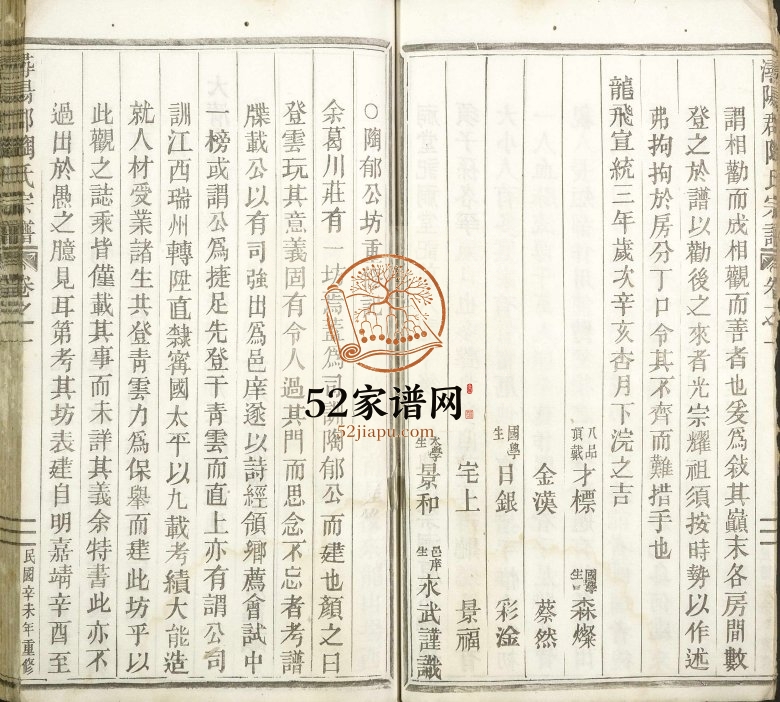 謂相勸而成相觀而善者也爰爲敍其巔末各房間數
登之於譜以勸後之來者光宗耀祖須按時勢以作述
弗拘拘於房分丁口令其不齊而難措手也
龍飛宣統三年歲次辛亥杏月下浣之吉
八品頂戴才標 國學生森燦
金漢 蔡然
國學生日銀 彩淦
宅上 景福
太學生景和 邑庠生永武謹識
潯陽郡陶氏宗譜 卷之一
○陶郁公坊重
余葛川莊有一坊焉蓋為司訓陶郁公而建也顏之曰
登雲玩其意義固有令人過其門而思念不忘者考譜
牒載公以有司強出爲邑庠遂以詩經領鄉薦會試中
一榜或謂公爲捷足先登干靑雲而直上亦有謂公司
訓江西瑞州轉陞直隸甯國太平以九載考績大能造
就人材受業諸生共登靑雲力爲保舉而建此坊乎以
此觀之誌乘皆僅載其事而未詳其義余特書此亦不
過出於愚之臆見耳第考其坊表建自明嘉靖辛酉至
潯陽郡陶氏宗譜 卷之一
民國辛未年重修
52家谱网
52jiapu.com